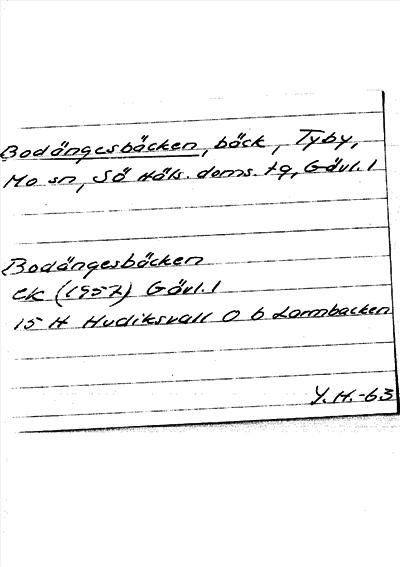 Bodängesbäcken, bäck, Tyby,
Mo sn, Sö Häls. doms. tg, Gävl. l
Bodängesbäcken
EK (1957) Gävl. l
15 H Hudiksvall O b Lammbacken
Y. H. -63